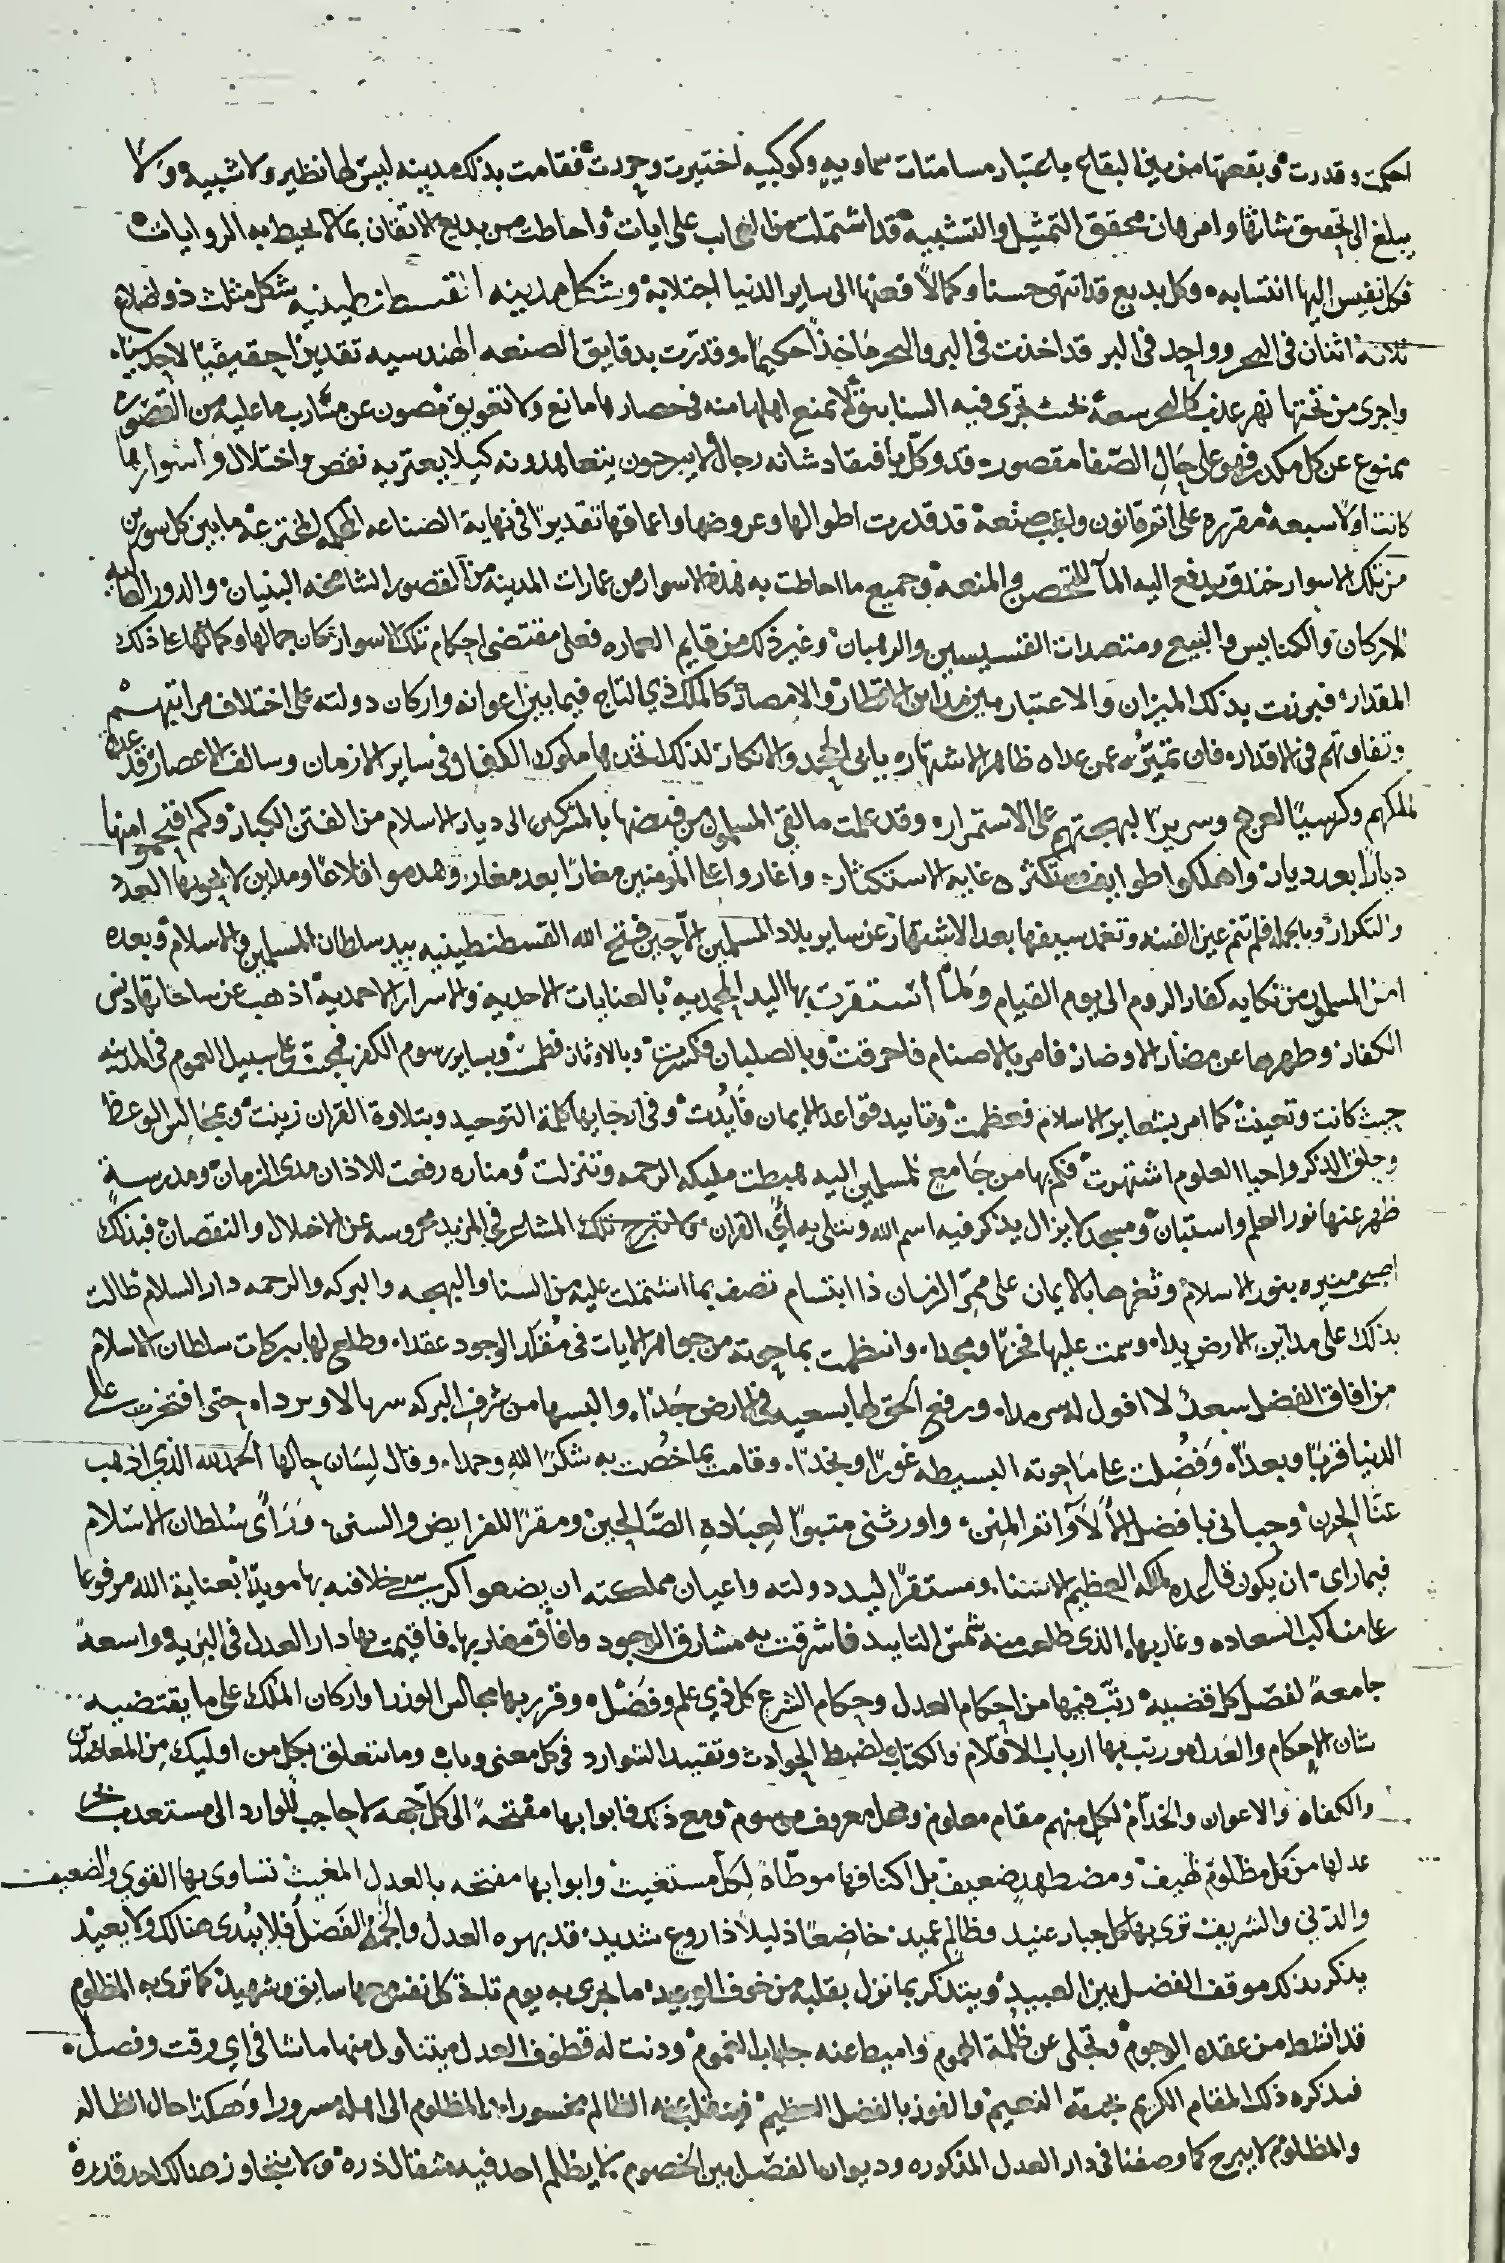 احكمت وقدرت وبقعتها من بين البقاع باعتبار مسامتات سماويه وكوكبيه اختيرت وحررت فقامت بذلك مدينه ليس لها نظير ولا شبيه ولا
يبلغ الى تحقيق شانها وامرها من محقق التمثيل والتشبيه قد اشتملت من العجاب على ايات واحاطت من بديع الاتقان بما لا يحيط به الروايات
فكل نفيس اليها انتسابه وكل بديع قد انتهى حسنا وكمالا فعنها الى ساير الدنيا اجتلابه وشكل مدينه القسطنطينيه شكل مثلث ذو اضلاع
ثلاثة اثنان فى البحر وواحد فى البر قد اخذت فى البر والبحر ماخذا حكيما وقدرت بدقايق الصنعه الهندسيه تقديرا حقيقيا
واجرى من تحتها نهر عذب كالبحر سعة بحيث تجرى فيه السفاين لا يمنع اهلها منه فى حصار لها مانع ولا تعويق مصون عن مشارب ما عليه من القصور
ممنوع عن كل مكدر فهو على حال الصفا مقصور قد وكل بافتقاد شانه رجال لا يبرحون يتعاهدونه كيلا يعتريه نقص واختلال واسوارها
كانت اولا سبعة مقررة على اتم قانون واعجب صنعة قد قدرت اطوالها وعروضها واعماقها تقديرا فى نهاية الصناعه المحكمه المخترعة ما بين كل سورين
من تلك الاسوار خندق يدفع اليه المآ للتحصن والمنعة وجميع ما احاطت به هذه الاسوار من عمارات المدينه من القصور الشامخه البنيان والدور العاليه
الاركان والكنايس والبيع ومتعبدات القسيسين والرهبان وغير ذلك من قايم العماره فعلى مقتضى احكام تلك الاسوار كان جمالها وكمالها على ذلك
المقدار فبرزت بذلك الميزان والاعتبار بين مداين الاقطار والامصار كالملك ذي التاج فيما بين اعوانه واركان دولته على اختلاف مراتبهم
وتفاوتهم فى الاقدار فان تميزه عمن عداه ظاهر الاشتهار يابى الجحد والانكار لذلك اتخذها ملوك الكفار فى ساير الازمان وسالف الاعصار قاعدة
لملكهم وكرسيا لعزهم وسريرا لبهجتهم على الاستمرار وقد علمت ما لقي المسلمون من فيضها بالمشركين الى ديار الاسلام من الفتن الكبار وكم افتتحوا منها
ديارا بعد ديار واهلكوا طوايف مستكثره غايه الاستكثار واغاروا على المؤمنين مغارا بعد مغار وهدموا قلاعا ومداين لا يحويها العدد
والتكرار وبالجمله فلم تنم عين الفتنه وتغمد سيفها بعد الاشتهار عن ساير بلاد المسلمين الا حين فتح الله القسطنطينيه بيد سلطان المسلمين والاسلام وبعده
امن المسلمون من نكايه كفار الروم الى يوم القيام ولما استقرت بها اليد المحمديه بالعنايات الاحديه والاسرار الاحمديه اذهب عن ساحاتها دنس
الكفار وطهرها عن مضار الاوضار فامر بالاصنام فاحرقت وبالصلبان فكسرت وبالاوثان فطمست وبساير رسوم الكفر فمحيت على سبيل العموم فى المدينه
حيث كانت وتعينت كما امر بشعاير الاسلام فعظمت وتاييد قواعد الايمان فايدت وفى ارجايها كلمة التوحيد وبتلاوة القران زينت وبمجالس الوعظ
وحلق الذكر واحيا العلوم اشتهرت فكم بها من جامع للمسلمين اليه هبطت مليكه الرحمه وتنزلت ومناره رفعت للاذان مدى الزمان ومدرسة
ظهر عنها نور العلم واستبان ومسجد لا يزال يذكر فيه اسم الله وتتلى به آي القران لا تبرح تلك المشاعر فى المزيد محروسه عن الاخلال والنقصان فبذلك
اصبحت منيره بنور الاسلام وثغرها بالايمان على ممر الزمان ذا ابتسام تصف بما اشتملت عليه من السنا والبهجه والبركه والرحمه دار السلام طالت
بذلك على مداين الارض يدا وسمت عليها فخرا ومجدا وانتظمت بما حوته من جواهر الايات فى مقلد الوجود عقدا وطلع لها ببركات سلطان الاسلام
من افاق الفضل سعد لا افول له سرمدا ورفع الحق لها بسعيه فى الارض جدا والبسها من شرف البركه سربالا وبردا حتى افتخرت على
الدنيا قربا وبعدا وفضلت على ما حوته البسيطه غورا ونجدا وقامت بما خصت به شكرا لله وحمدا وقال لسان حالها الحمد لله الذي اذهب
عنا الحزن وحبانى بافضل الالآ واتم المنن واورثنى متبوا لعبادة الصالحين ومقرا للفرايض والسنن ورأى سلطان الاسلام
فيما راى ان يكون قاعده لملكه العظيم الاسنا ومستقرا ليد دولته واعيان مملكته ان يضعوا كرسي خلافته بها مويدا بعناية الله مرفوعا
على مناكب السعاده وغاربها الذى طلعت منه شمس التاييد فاشرقت به مشارق الوجود وافاق مغاربها فاقيمت بها دار العدل فى البريه واسعة
جامعة لفصل كل قضيه رتب فيها من احكام العدل وحكام الشرع كل ذي علم وفضل وقرر بها مجالس الوزرا واركان الملك على ما يقتضيه
شان الاحكام والعدل ورتب بها ارباب الاقلام والكتاب لضبط الحوادث وتقييد الشوارد فى كل معنى وباب وما يتعلق بكل من اوليك من المعاضدين
والكفاة والاعوان والخدام لكل منهم مقام معلوم ومحل معروف مرسوم ومع ذلك فابوابها مفتحة الى كل جهه لا حاجب للوارد الى مستعذب بحر
عدلها من كل مظلوم لهيف ومضطهد ضعيف بل اكنافها موطاة لكل مستغيث وابوابها مفتحه بالعدل المغيث تساوى بها القوي والضعيف
والدني والشريف ترى بها كل جبار عنيد وظالم عميد خاضعا ذليلا ذا روع شديد قد بهره العدل والحكم الفصل فلا يبدى هنالك ولا يعيد
يذكر بذلك موقف الفصل بين العبيد ويتذكر بما نزل بقلبه من خوف الوعيد ما يجرى به يوم تاتي كل نفس معها سايق وشهيد كما ترى به المظلوم
قد انشط من عقده الوجوم وتجلى عن ظلمة الهموم واميط عنه جلباب الغموم ودنت له قطوف العدل يتناول منها ما شا فى اي وقت وفصل
فيذكره ذلك المقام الكريم جنة النعيم والفوز بالفضل العظيم فينقلب عنه الظالم مخسورا والمظلوم الى اهله مسرورا وهكذا حال الظالم
والمظلوم لا يبرح كما وصفنا فى دار العدل المذكوره وديوان الفصل بين الخصوم لا يظلم احد فيه مثقال ذره ولا يتجاوز هنالك احد قدره